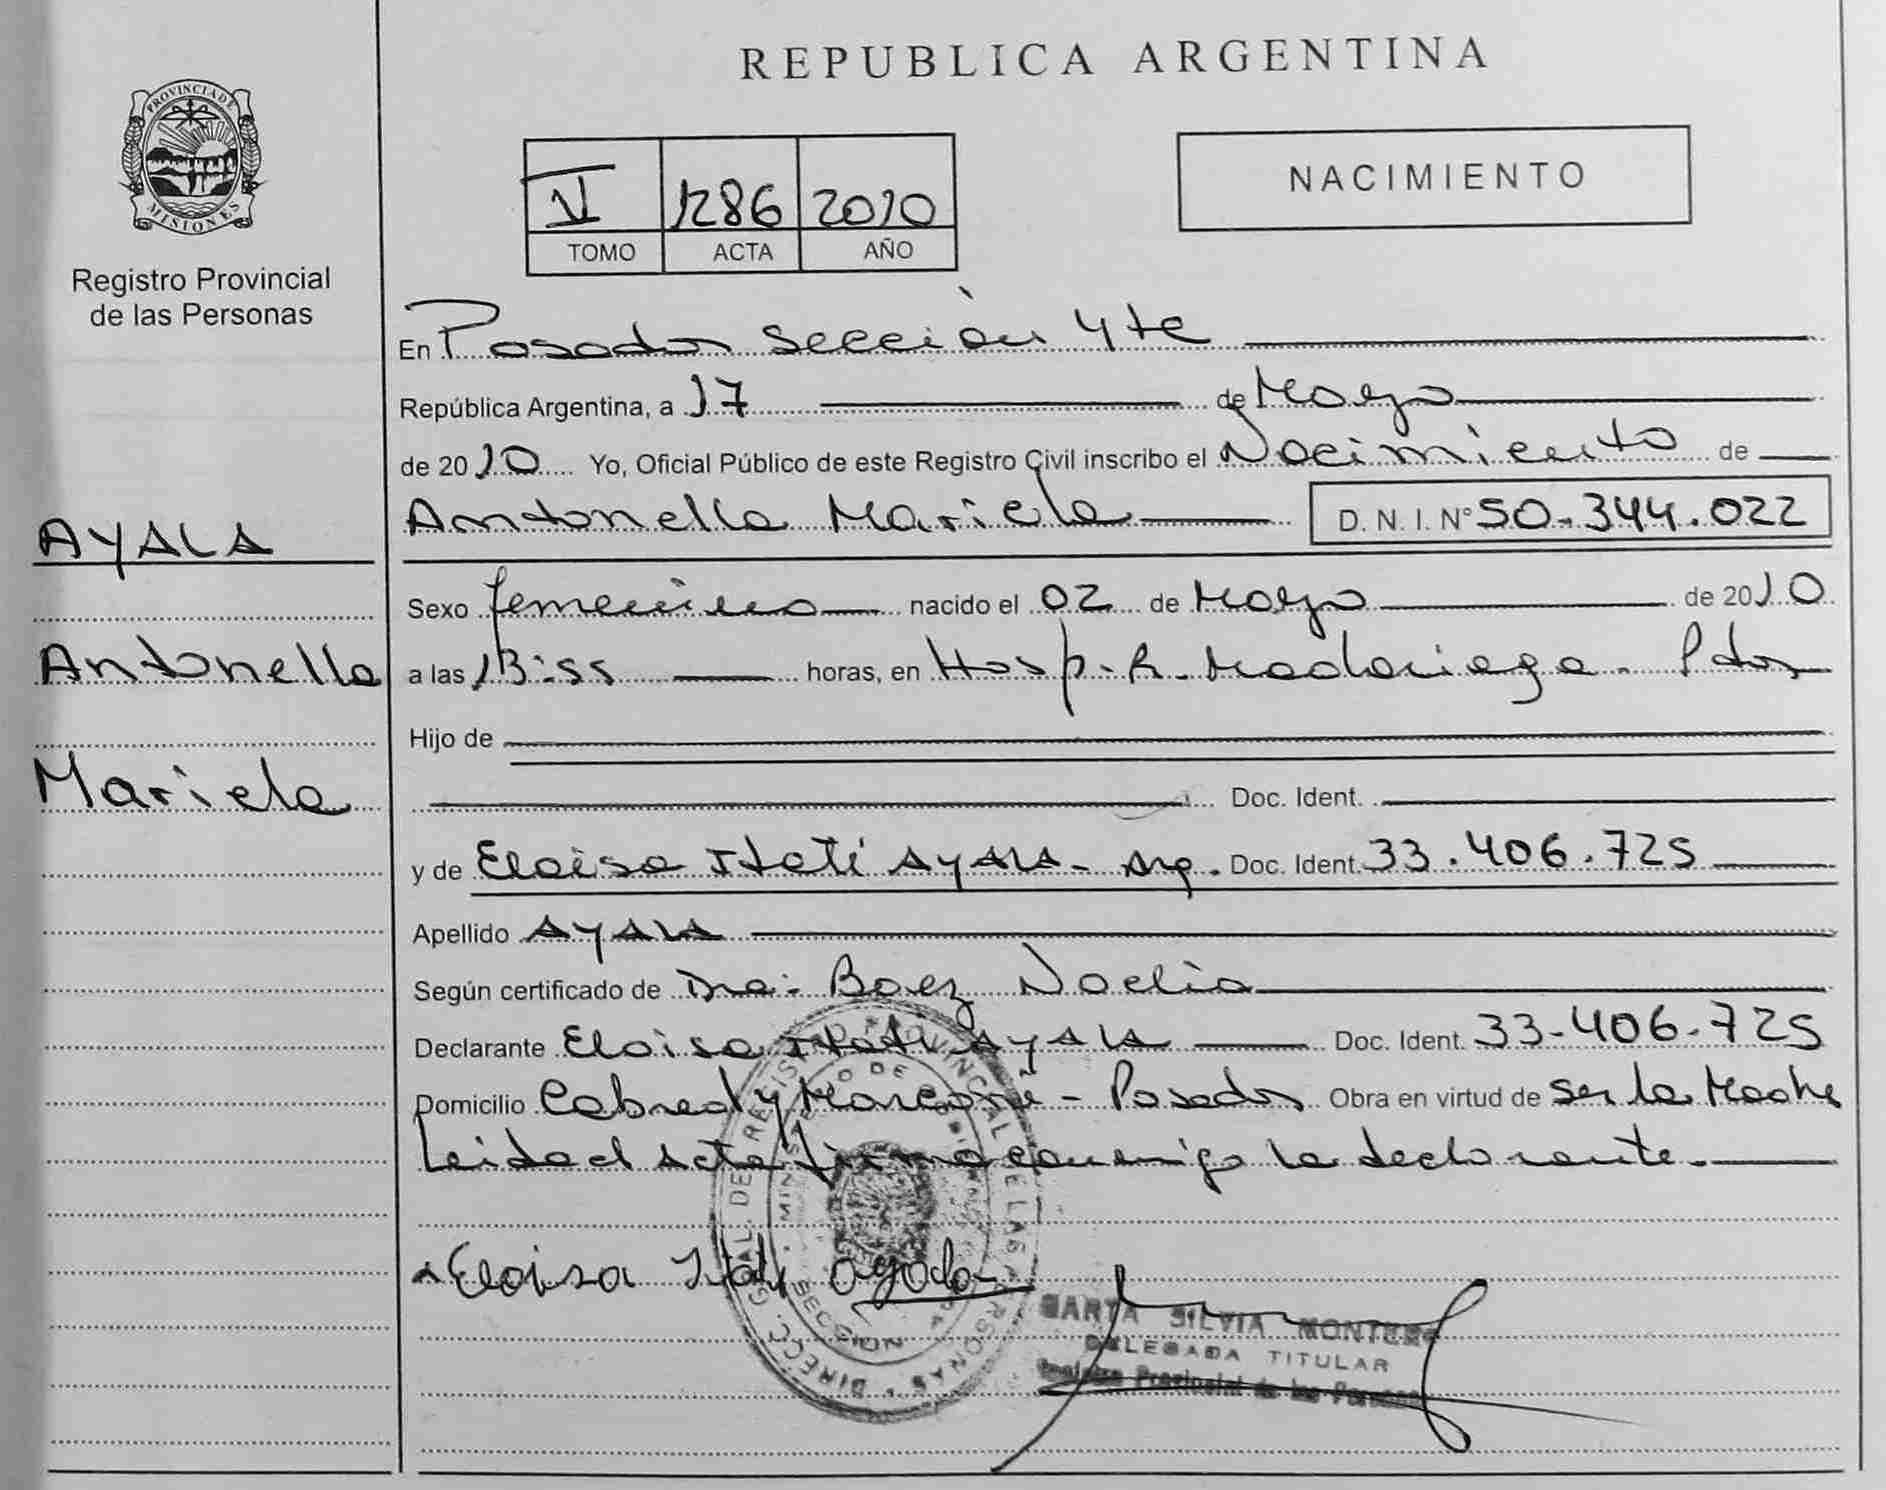 REPUBLICA ARGENTINA
PROVINCIA DE
MISIONES
Registro Provincial
de las Personas
VI 1286 2010
TOMO ACTA AÑO
NACIMIENTO
En Posadas sección 4te
República Argentina, a 17 de Mayo
de 2010 Yo, Oficial Público de este Registro Civil inscribo el Nacimiento de
Antonella Mariela D. N. I. N° 50.344.022
AYALA
Antonella
Mariela
Sexo femenino nacido el 02 de Mayo de 2010
a las 13:55 horas, en Hosp. R. Madariaga - Pdas
Hijo de
Doc. Ident.
y de Eloisa Itatí AYALA - Arg. Doc. Ident. 33.406.725
Apellido AYALA
Según certificado de Dra. Baez Noelia
Declarante Eloisa Itatí AYALA Doc. Ident. 33-406-725
Domicilio Cabred y Marconi - Posadas Obra en virtud de Ser la Madre
Leida el acta firma conmigo la declarante.
Eloisa Itati ayala
DIRECC. GRAL. DE REGISTRO PROVINCIAL DE LAS PERSONAS
MARTA SILVIA MONTERO
DELEGADA TITULAR
Registro Provincial de las Personas